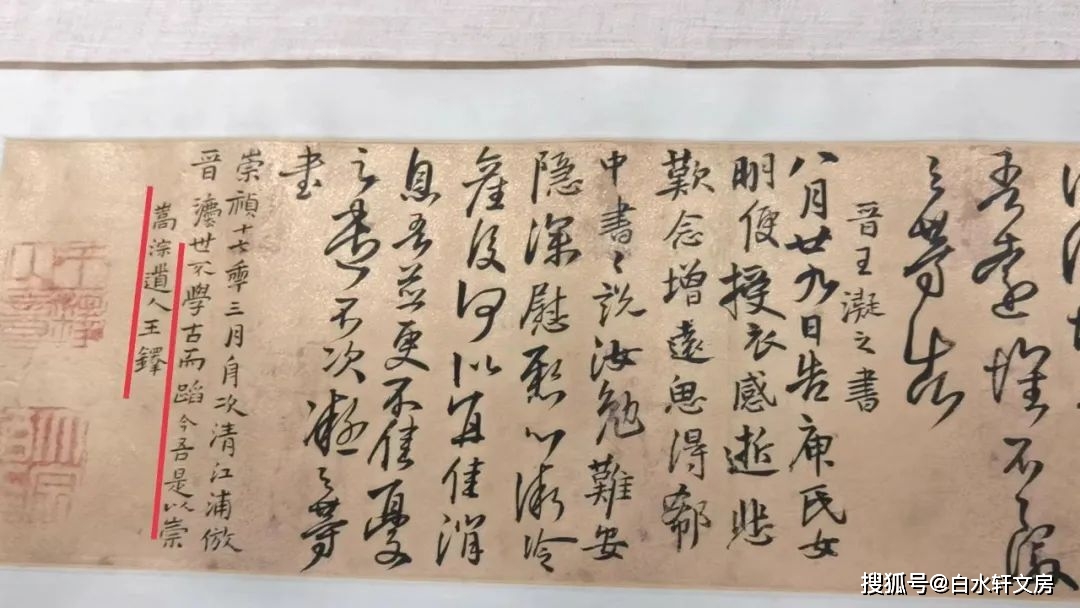 不
之等告
晋王凝之書
八月廿九日告庾氏女
明便授衣感逝悲
歎念增遠思得郗
中書〻說汝勉難安
隱深慰懸心漸冷
產後何似宜佳消
息吾並更不佳憂
之 不次凝之等
書
崇禎十七年三月舟次清江浦倣
晉灋世不學古而蹈今吾是以崇
嵩淙道人王鐸
搜狐号@白水轩文房